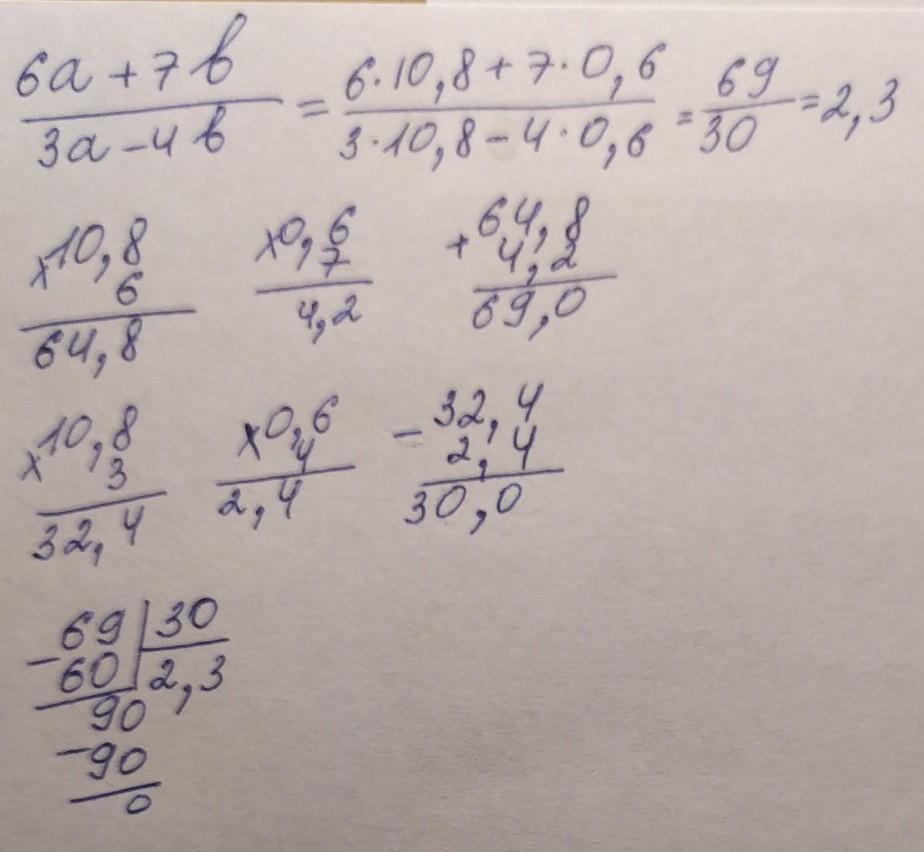 6a + 7b / 3a - 4b = 6·10,8 + 7·0,6 / 3·10,8 - 4·0,6 = 69 / 30 = 2,3
×10,8 ×0,6 +64,8
6 7 4,2
64,8 4,2 69,0
×10,8 ×0,6 -32,4
3 4 2,4
32,4 2,4 30,0
-69 | 30
60 | 2,3
90
-90
0